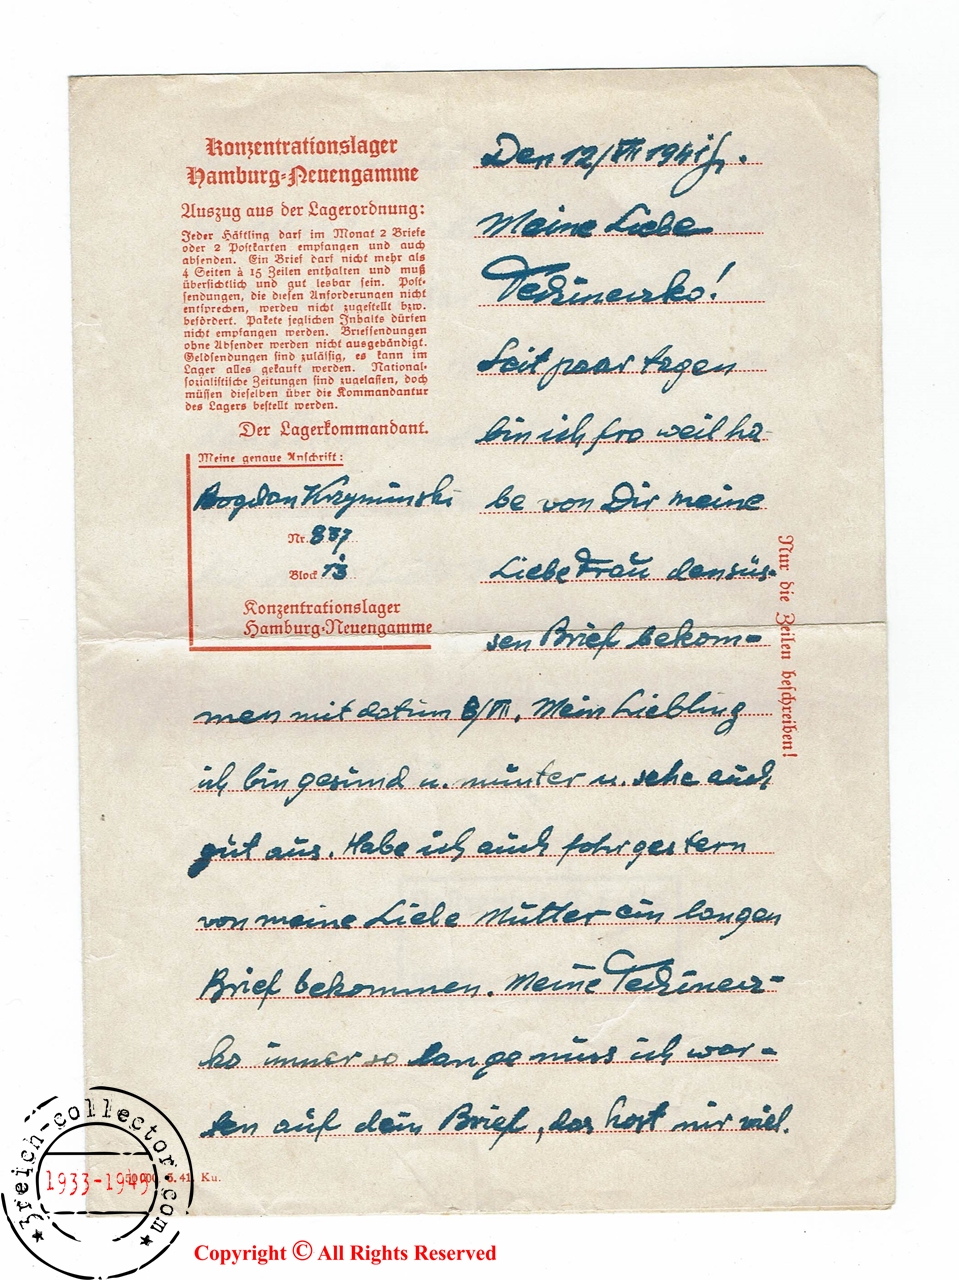 Konzentrationslager
Hamburg-Neuengamme
Auszug aus der Lagerordnung:
Jeder Häftling darf im Monat 2 Briefe
oder 2 Postkarten empfangen und auch
absenden. Ein Brief darf nicht mehr als
4 Seiten à 15 Zeilen enthalten und muß
übersichtlich und gut lesbar sein. Post-
sendungen, die diesen Anforderungen nicht
entsprechen, werden nicht zugestellt bzw.
befördert. Pakete jeglichen Inhalts dürfen
nicht empfangen werden. Briefsendungen
ohne Absender werden nicht ausgehändigt.
Geldsendungen sind zulässig, es kann im
Lager alles gekauft werden. National-
sozialistische Zeitungen sind zugelassen, doch
müssen dieselben über die Kommandantur
des Lagers bestellt werden.
Der Lagerkommandant.
Meine genaue Anschrift:
Bogdan Krzyminski
Nr. 837
Block 13
Konzentrationslager
Hamburg-Neuengamme
Den 12/VII 1941 J.
Meine Liebe
Seit paar tagen
bin ich fro weil ha-
be von Dir meine
Liebe Frau den süs-
sen Brief bekom-
men mit datum /VII. Mein Liebling
ich bin gesund u. munter u. sehe auch
gut aus. Habe ich auch fohrgestern
von meine Liebe Mutter ein langen
Brief bekommen. Meine
ko immer so lange muss ich war-
ten auf dein Brief, das hast mir viel.
Nur die Zeilen beschreiben!
50 000. 5. 41. Ku.
3reich-collector.com
1933-1945
Copyright © All Rights Reserved